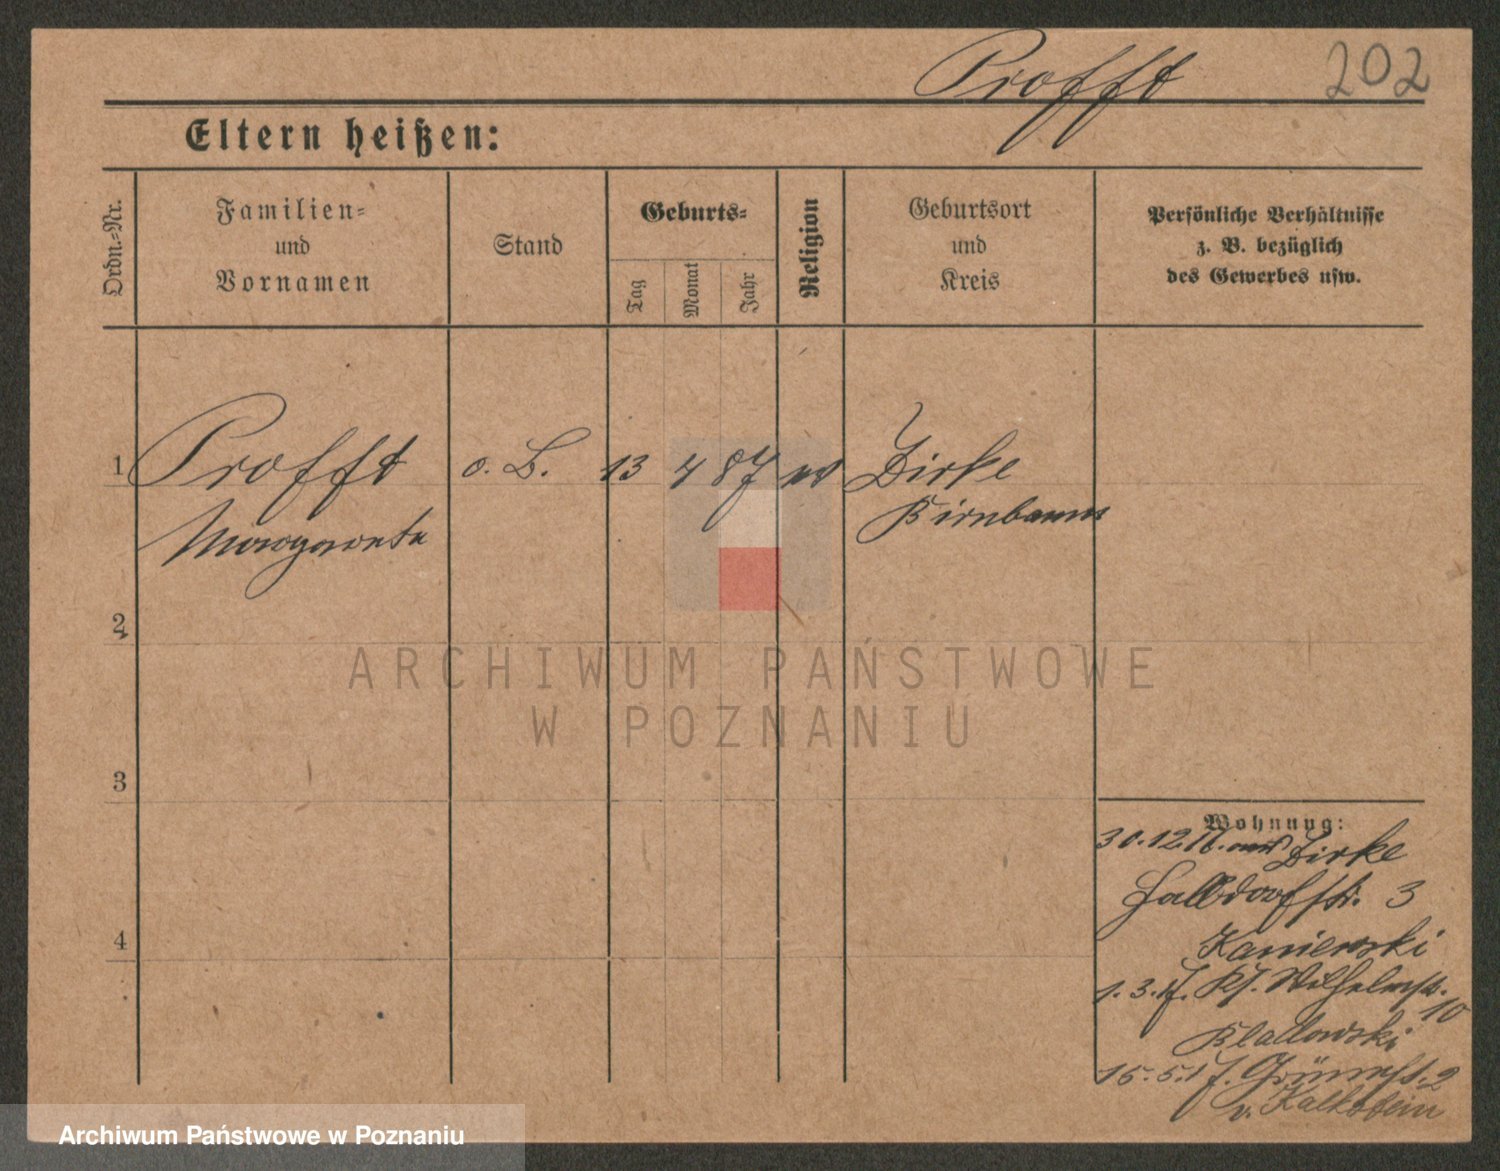 Profft 202
Eltern heißen:
Ordn.-Nr.
Familien-
und
Vornamen
Stand
Geburts-
Tag
Monat
Jahr
Religion
Geburtsort
und
Kreis
Persönliche Verhältnisse
z. B. bezüglich
des Gewerbes usw.
1 Profft o. B. 13 4 87 Zirke
Margareta Birnbaum
2
3
4
Wohnung:
30.12.16. aus Zirke
Halbdorfstr. 3
Kaniewski
1.3.17. Wilhelmstr. 10
15.5.17. 2
v. Kalkstein
ARCHIWUM PAŃSTWOWE
W POZNANIU
Archiwum Państwowe w Poznaniu